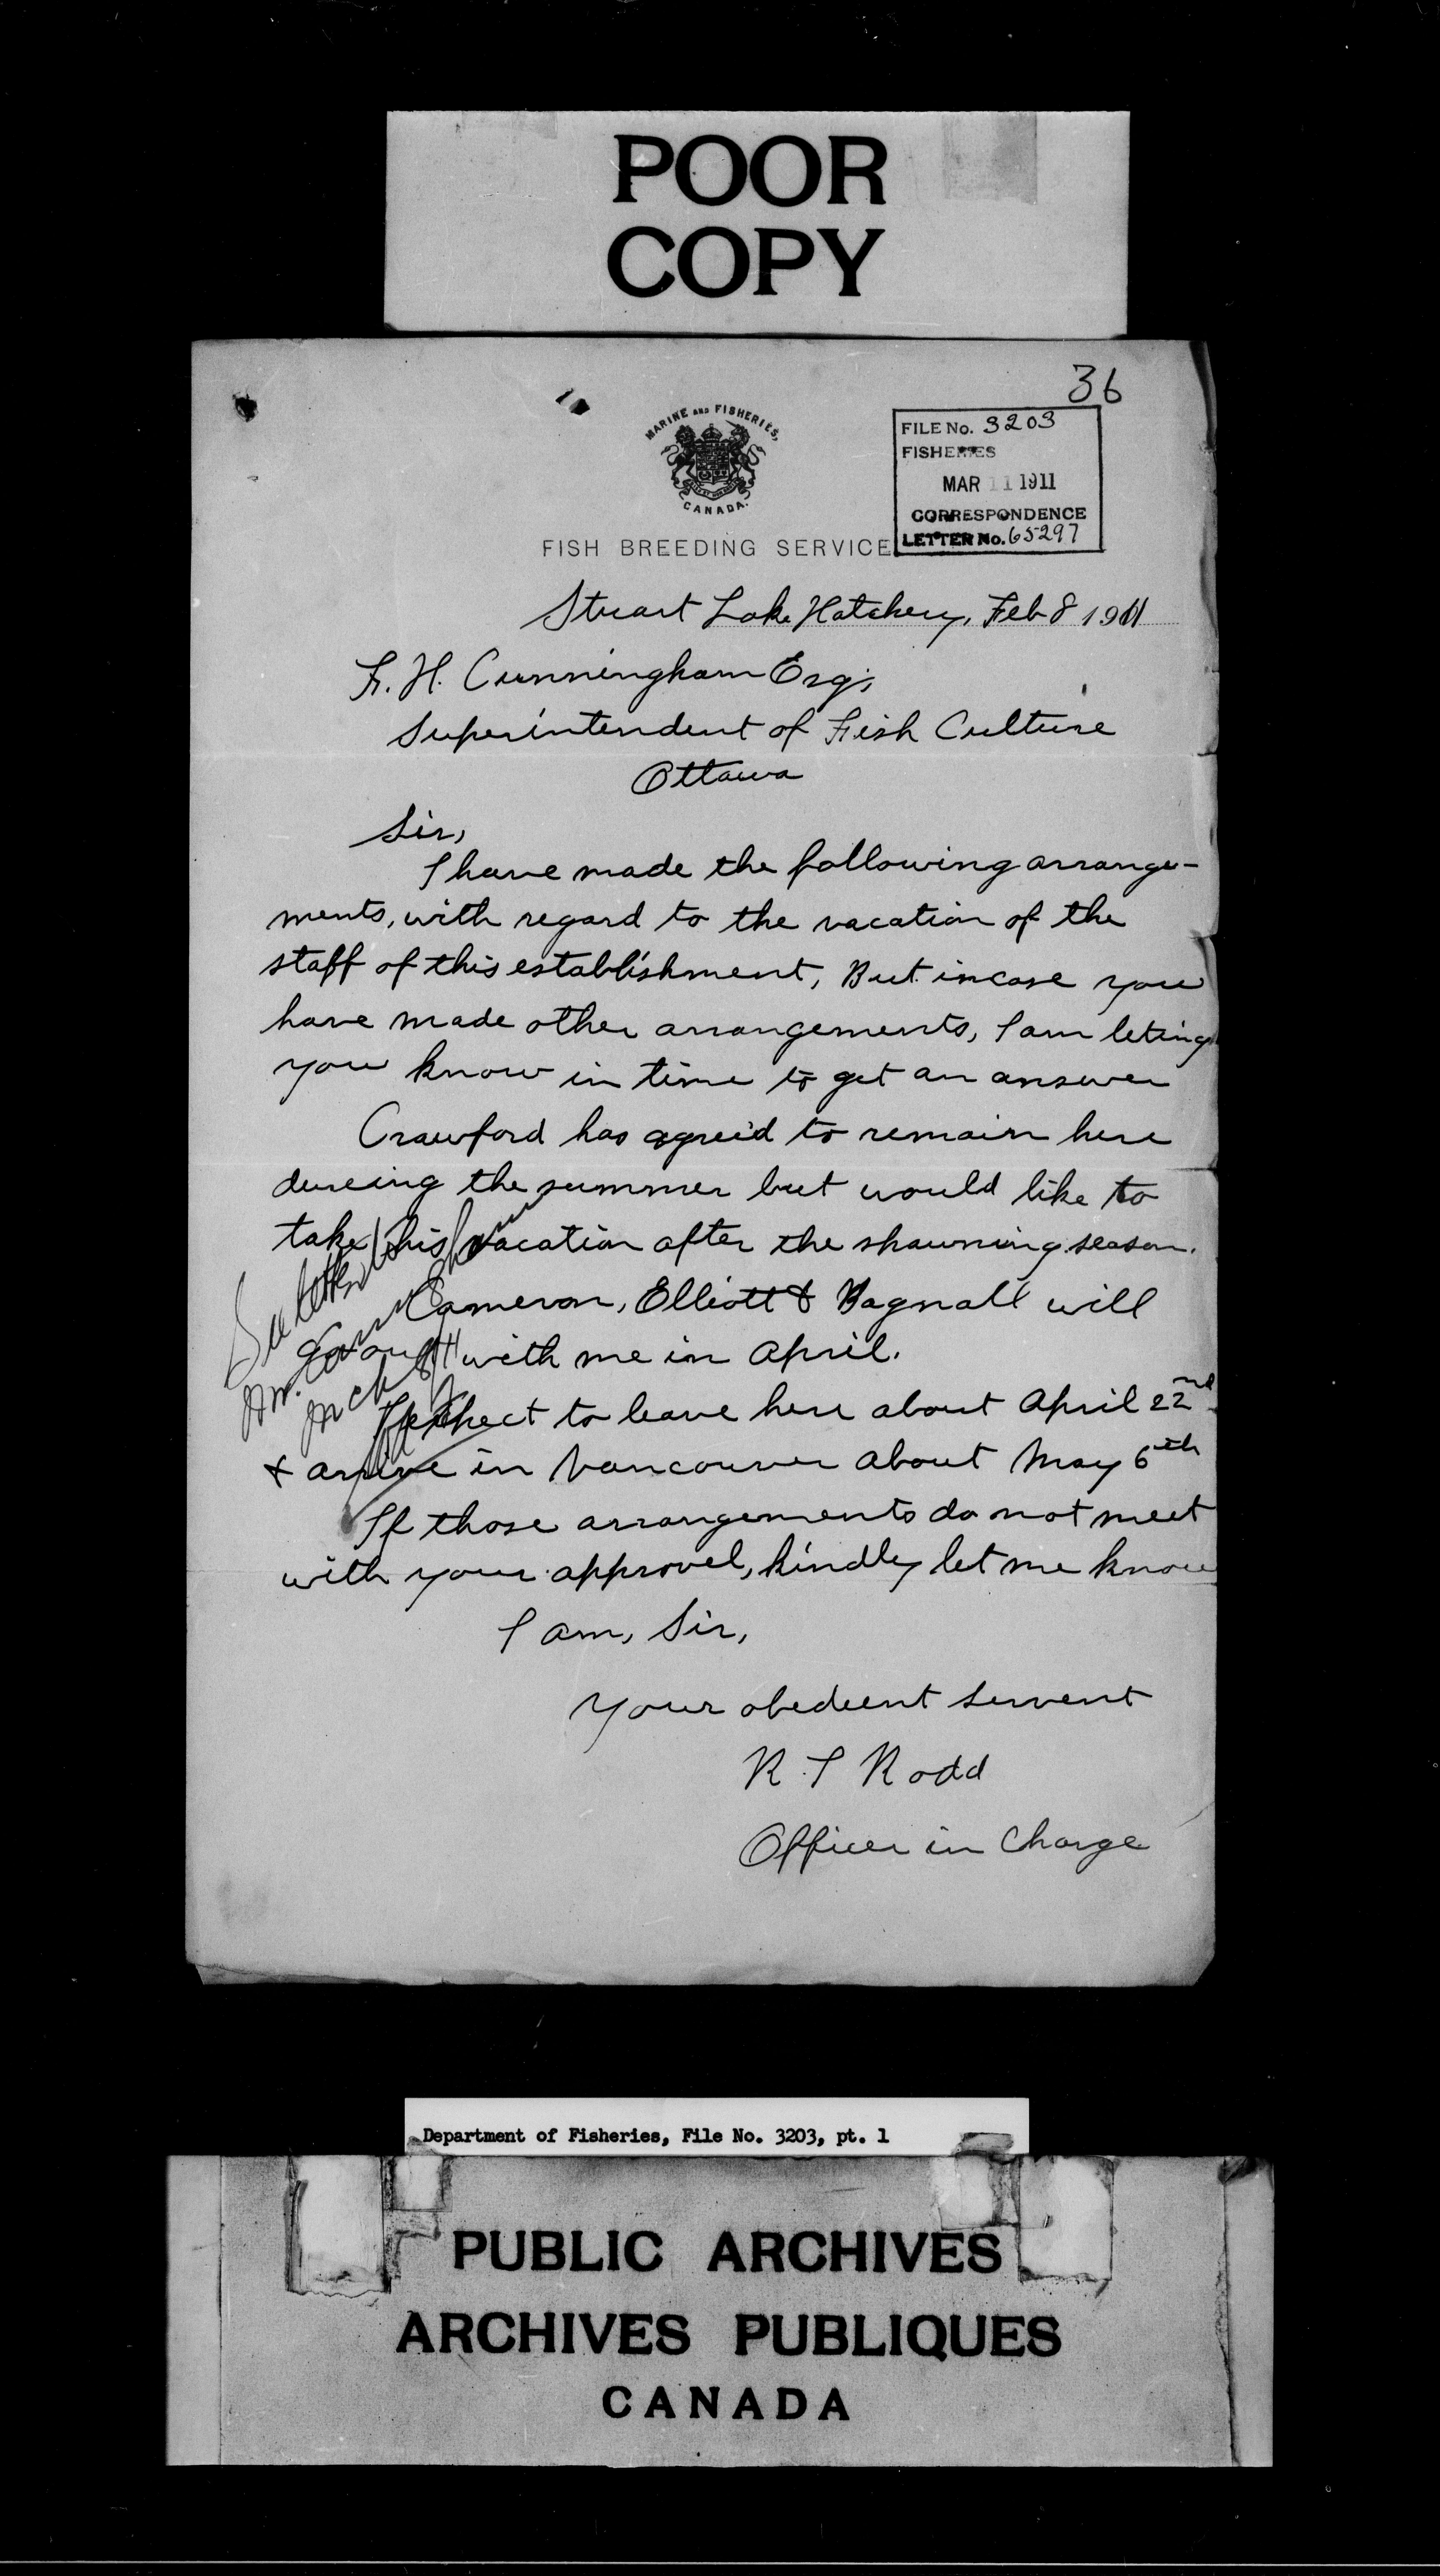 POOR
COPY
36
MARINE AND FISHERIES,
CANADA.
FILE No. 3203
FISHERIES
MAR 11 1911
CORRESPONDENCE
LETTER No. 65297
FISH BREEDING SERVICE
Stuart Lake Hatchery, Feb 8 1911
F. H. Cunningham Esq;
Superintendent of Fish Culture
Ottawa
Sir,
I have made the following arrange-
ments, with regard to the vacation of the
staff of this establishment, But incase you
have made other arrangements, I am leting
you know in time to get an answer
Crawford has agreid to remain here
dureing the summer but would like to
take his vacation after the shawning season.
Cameron, Elliott & Bagnall will
go out with me in April.
I expect to leave here about April 22nd
& arrive in Vancouver about May 6th
If those arrangements do not meet
with your approvel, kindly let me know
I am, Sir,
Your obedient servent
R. T Rodd
Officer in Charge
See letter to
Mr. Cunningham
Department of Fisheries, File No. 3203, pt. 1
PUBLIC ARCHIVES
ARCHIVES PUBLIQUES
CANADA